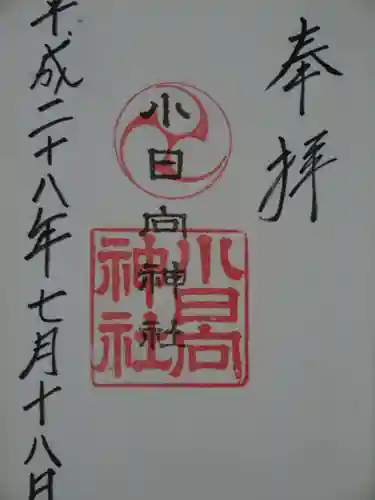 奉拝
小日向神社
小日向神社
平成二十八年七月十八日